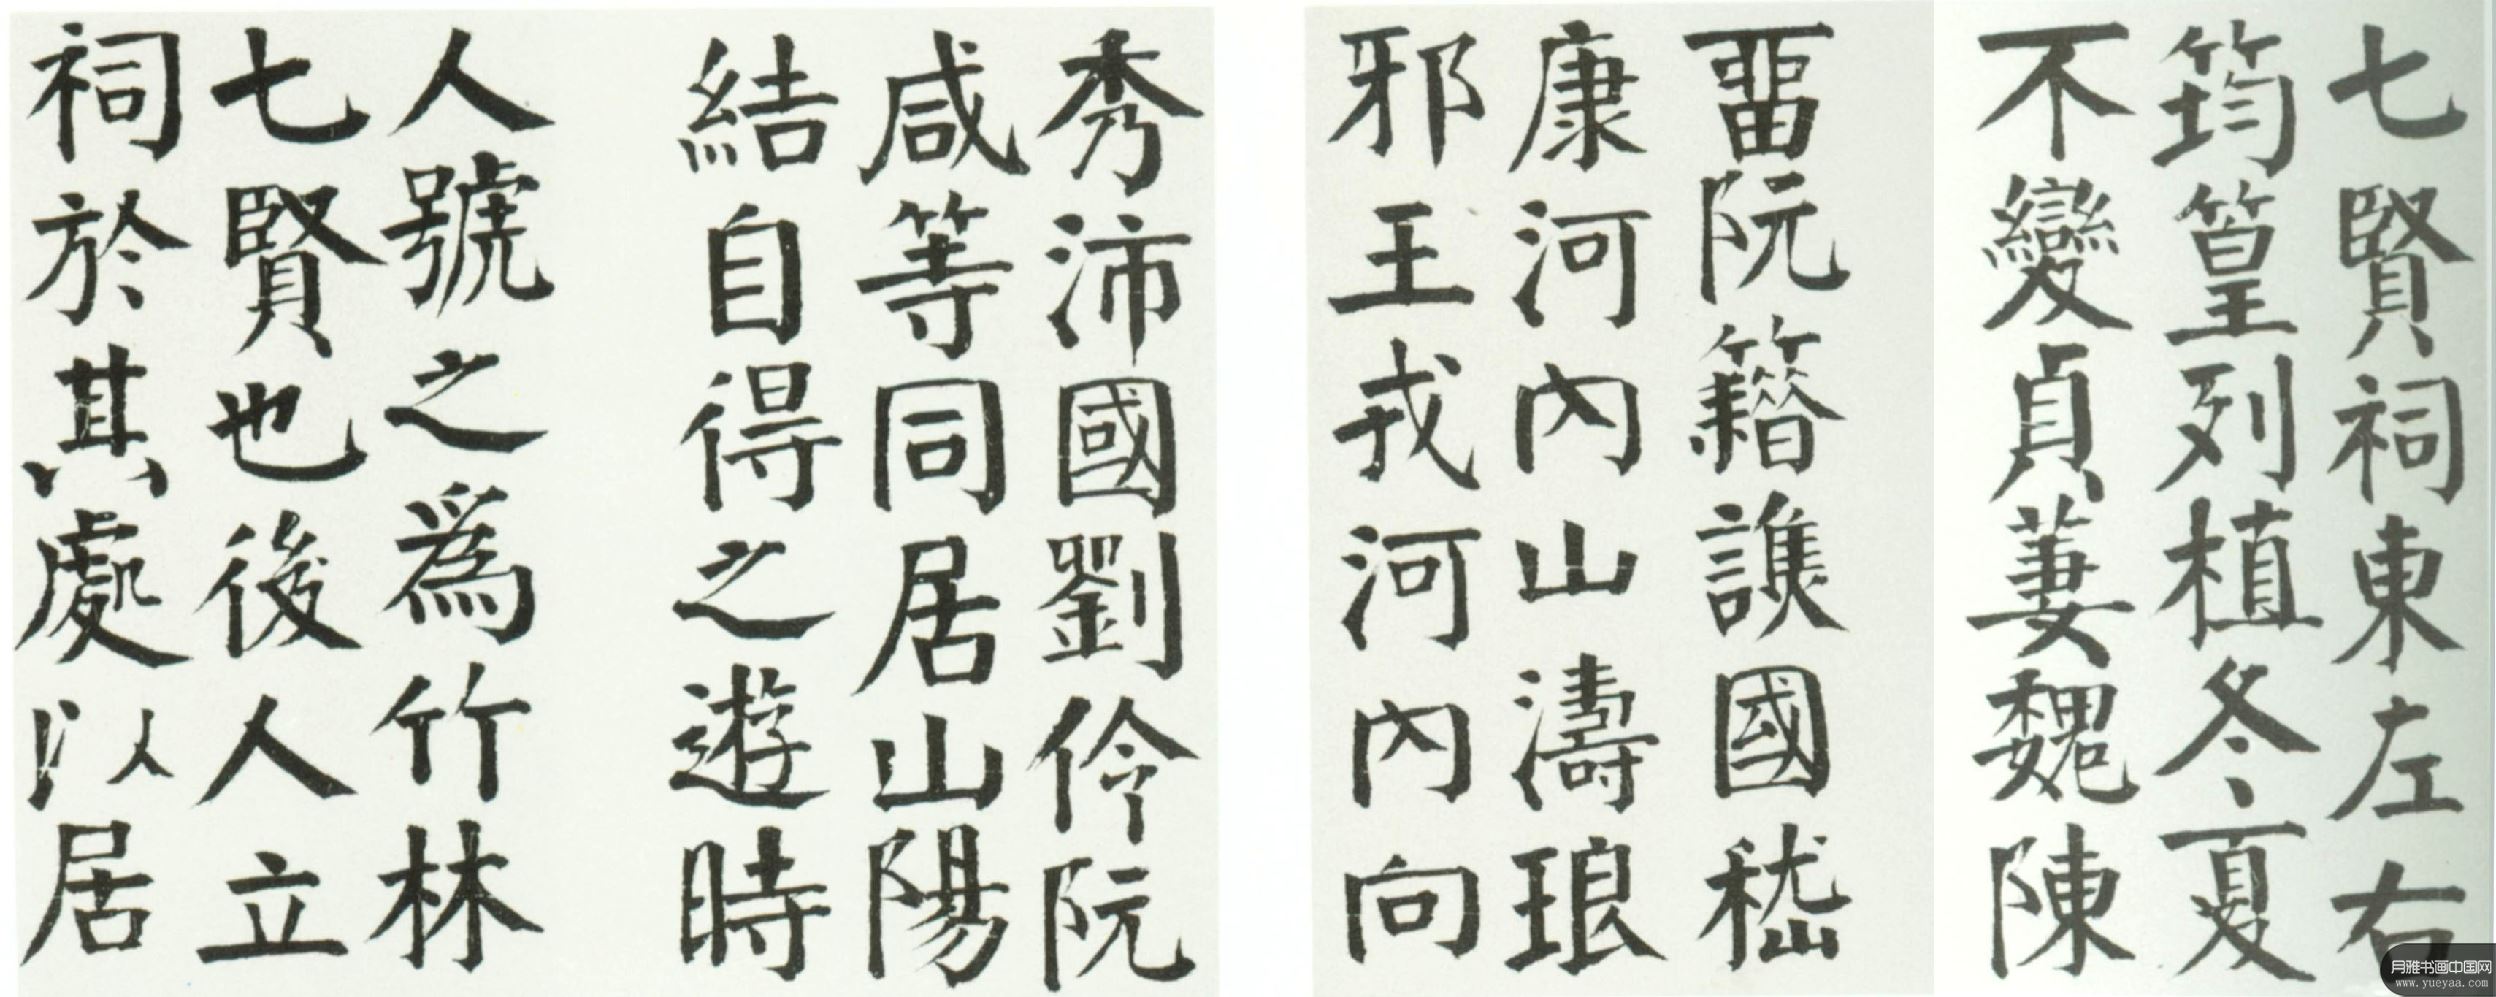 七賢祠東左右
筠篁列植冬夏
不變貞萋魏陳
畱阮籍譙國嵇
康河內山濤琅
邪王戎河內向
秀沛國劉伶阮
咸等同居山陽
結自得之遊時
人號之爲竹林
七賢也後人立
祠於其處以居
月雅书画中国网
www.yueyaa.com